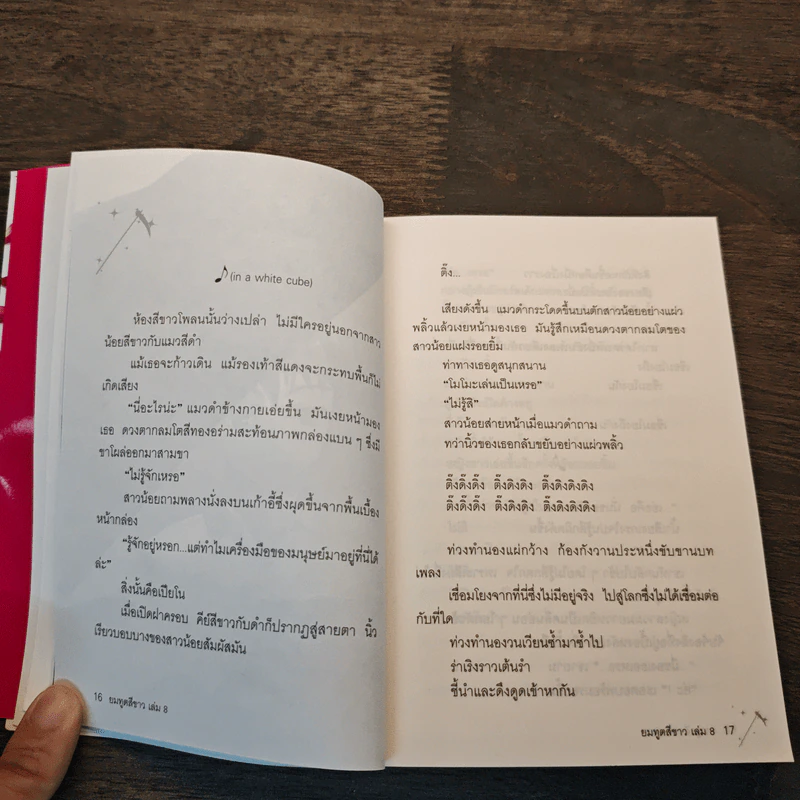 ♪(in a white cube)
ห้องสีขาวโพลนนั้นว่างเปล่า ไม่มีใครอยู่นอกจากสาว
น้อยสีขาวกับแมวสีดำ
แม้เธอจะก้าวเดิน แม้รองเท้าสีแดงจะกระทบพื้นก็ไม่
เกิดเสียง
“นี่อะไรน่ะ” แมวดำข้างกายเอ่ยขึ้น มันเงยหน้ามอง
เธอ ดวงตากลมโตสีทองอร่ามสะท้อนภาพกล่องแบน ๆ ซึ่งมี
ขาโผล่ออกมาสามขา
“ไม่รู้จักเหรอ”
สาวน้อยถามพลางนั่งลงบนเก้าอี้ซึ่งผุดขึ้นจากพื้นเบื้อง
หน้ากล่อง
“รู้จักอยู่หรอก...แต่ทำไมเครื่องมือของมนุษย์มาอยู่ที่นี่ได้
ล่ะ”
สิ่งนั้นคือเปียโน
เมื่อเปิดฝาครอบ คีย์สีขาวกับดำก็ปรากฏสู่สายตา นิ้ว
เรียวบอบบางของสาวน้อยสัมผัสมัน
16 ยมทูตสีขาว เล่ม 8
ติ๊ง...
เสียงดังขึ้น แมวดำกระโดดขึ้นบนตักสาวน้อยอย่างแผ่ว
พลิ้วแล้วเงยหน้ามองเธอ มันรู้สึกเหมือนดวงตากลมโตของ
สาวน้อยแฝงรอยยิ้ม
ท่าทางเธอดูสนุกสนาน
“โมโมะเล่นเป็นเหรอ”
“ไม่รู้สิ”
สาวน้อยส่ายหน้าเมื่อแมวดำถาม
ทว่านิ้วของเธอกลับขยับอย่างแผ่วพลิ้ว
ติ๊งดิ๊งดิ๊ง ติ๊งดิงดิง ติ๊งดิงดิงดิงดิง
ติ๊งดิ๊งดิ๊ง ติ๊งดิงดิง ติ๊งดิงดิงดิงดิง
ท่วงทำนองแผ่กว้าง ก้องกังวานประหนึ่งขับขานบท
เพลง
เชื่อมโยงจากที่นี่ซึ่งไม่มีอยู่จริง ไปสู่โลกซึ่งไม่ได้เชื่อมต่อ
กับที่ใด
ท่วงทำนองวนเวียนซ้ำมาซ้ำไป
ร่าเริงราวเต้นรำ
ชี้นำและดึงดูดเข้าหากัน
ยมทูตสีขาว เล่ม 8 17